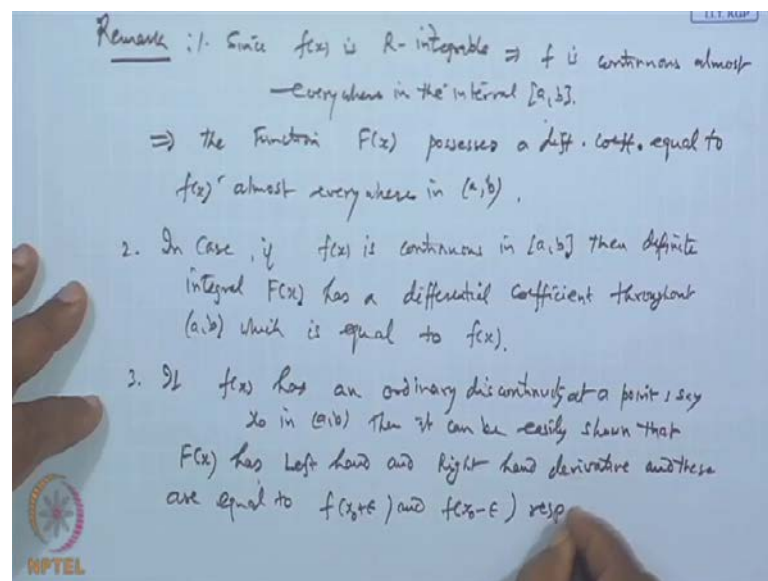 IIT KGP
Remark :1. Since f(x) is R-integrable ⇒ f is continuous almost
everywhere in the interval [a,b].
⇒ the Function F(x) possesses a diff. coeff. equal to
f(x) almost everywhere in (a,b).
2. In Case, if f(x) is continuous in [a,b] then definite
integral F(x) has a differential coefficient throughout
(a,b) which is equal to f(x).
3. If f(x) has an ordinary discontinuity at a point, say
x₀ in (a,b) then it can be easily shown that
F(x) has Left hand and Right hand derivative and these
are equal to f(x₀+ε) and f(x₀-ε) resp
NPTEL